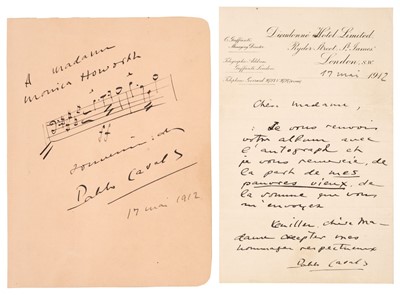 A Madame
Monica Howorth
souvenir de
Pablo Casals
17 mai 1912
Dieudonné Hotel Limited.
Ryder Street, St. James'
London, S.W.
Managing Director
Telegraphic Address,
17 mai 1912
Chère Madame,
Je vous renvoie
votre album avec
l'autograph et
je vous remercie, de
la part de mes
pauvres vieux, de
la somme que vous
m'envoyez
Veuillez, chère Ma-
dame accepter mes
hommages respectueux
Pablo Casals